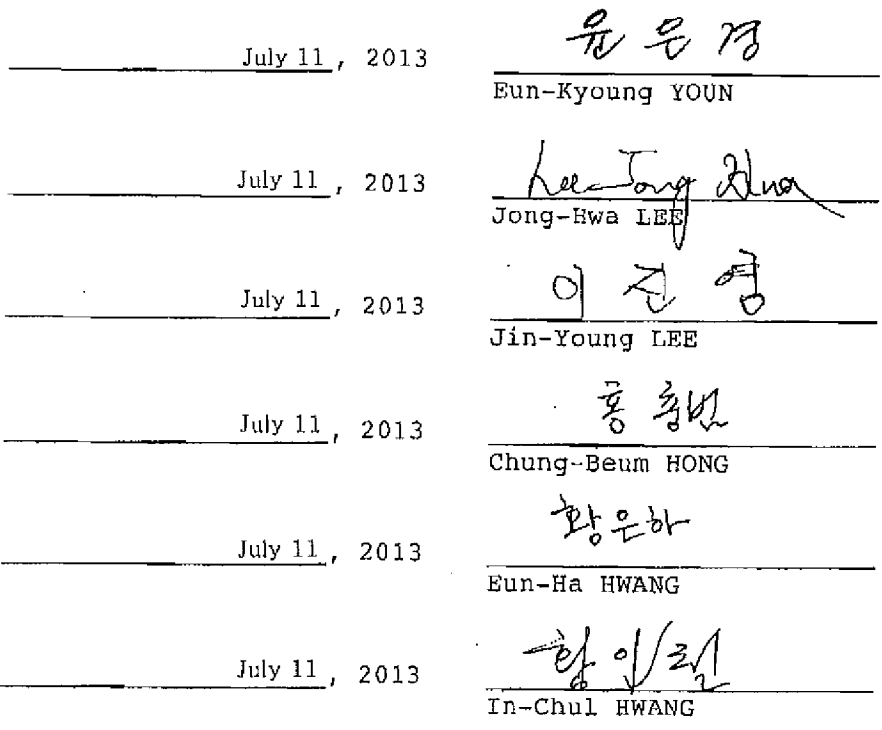 July 11, 2013 윤은경
Eun-Kyoung YOUN
July 11, 2013 Lee Jong Hwa
Jong-Hwa LEE
July 11, 2013 이진영
Jin-Young LEE
July 11, 2013 홍충범
Chung-Beum HONG
July 11, 2013 황은하
Eun-Ha HWANG
July 11, 2013 황인철
In-Chul HWANG